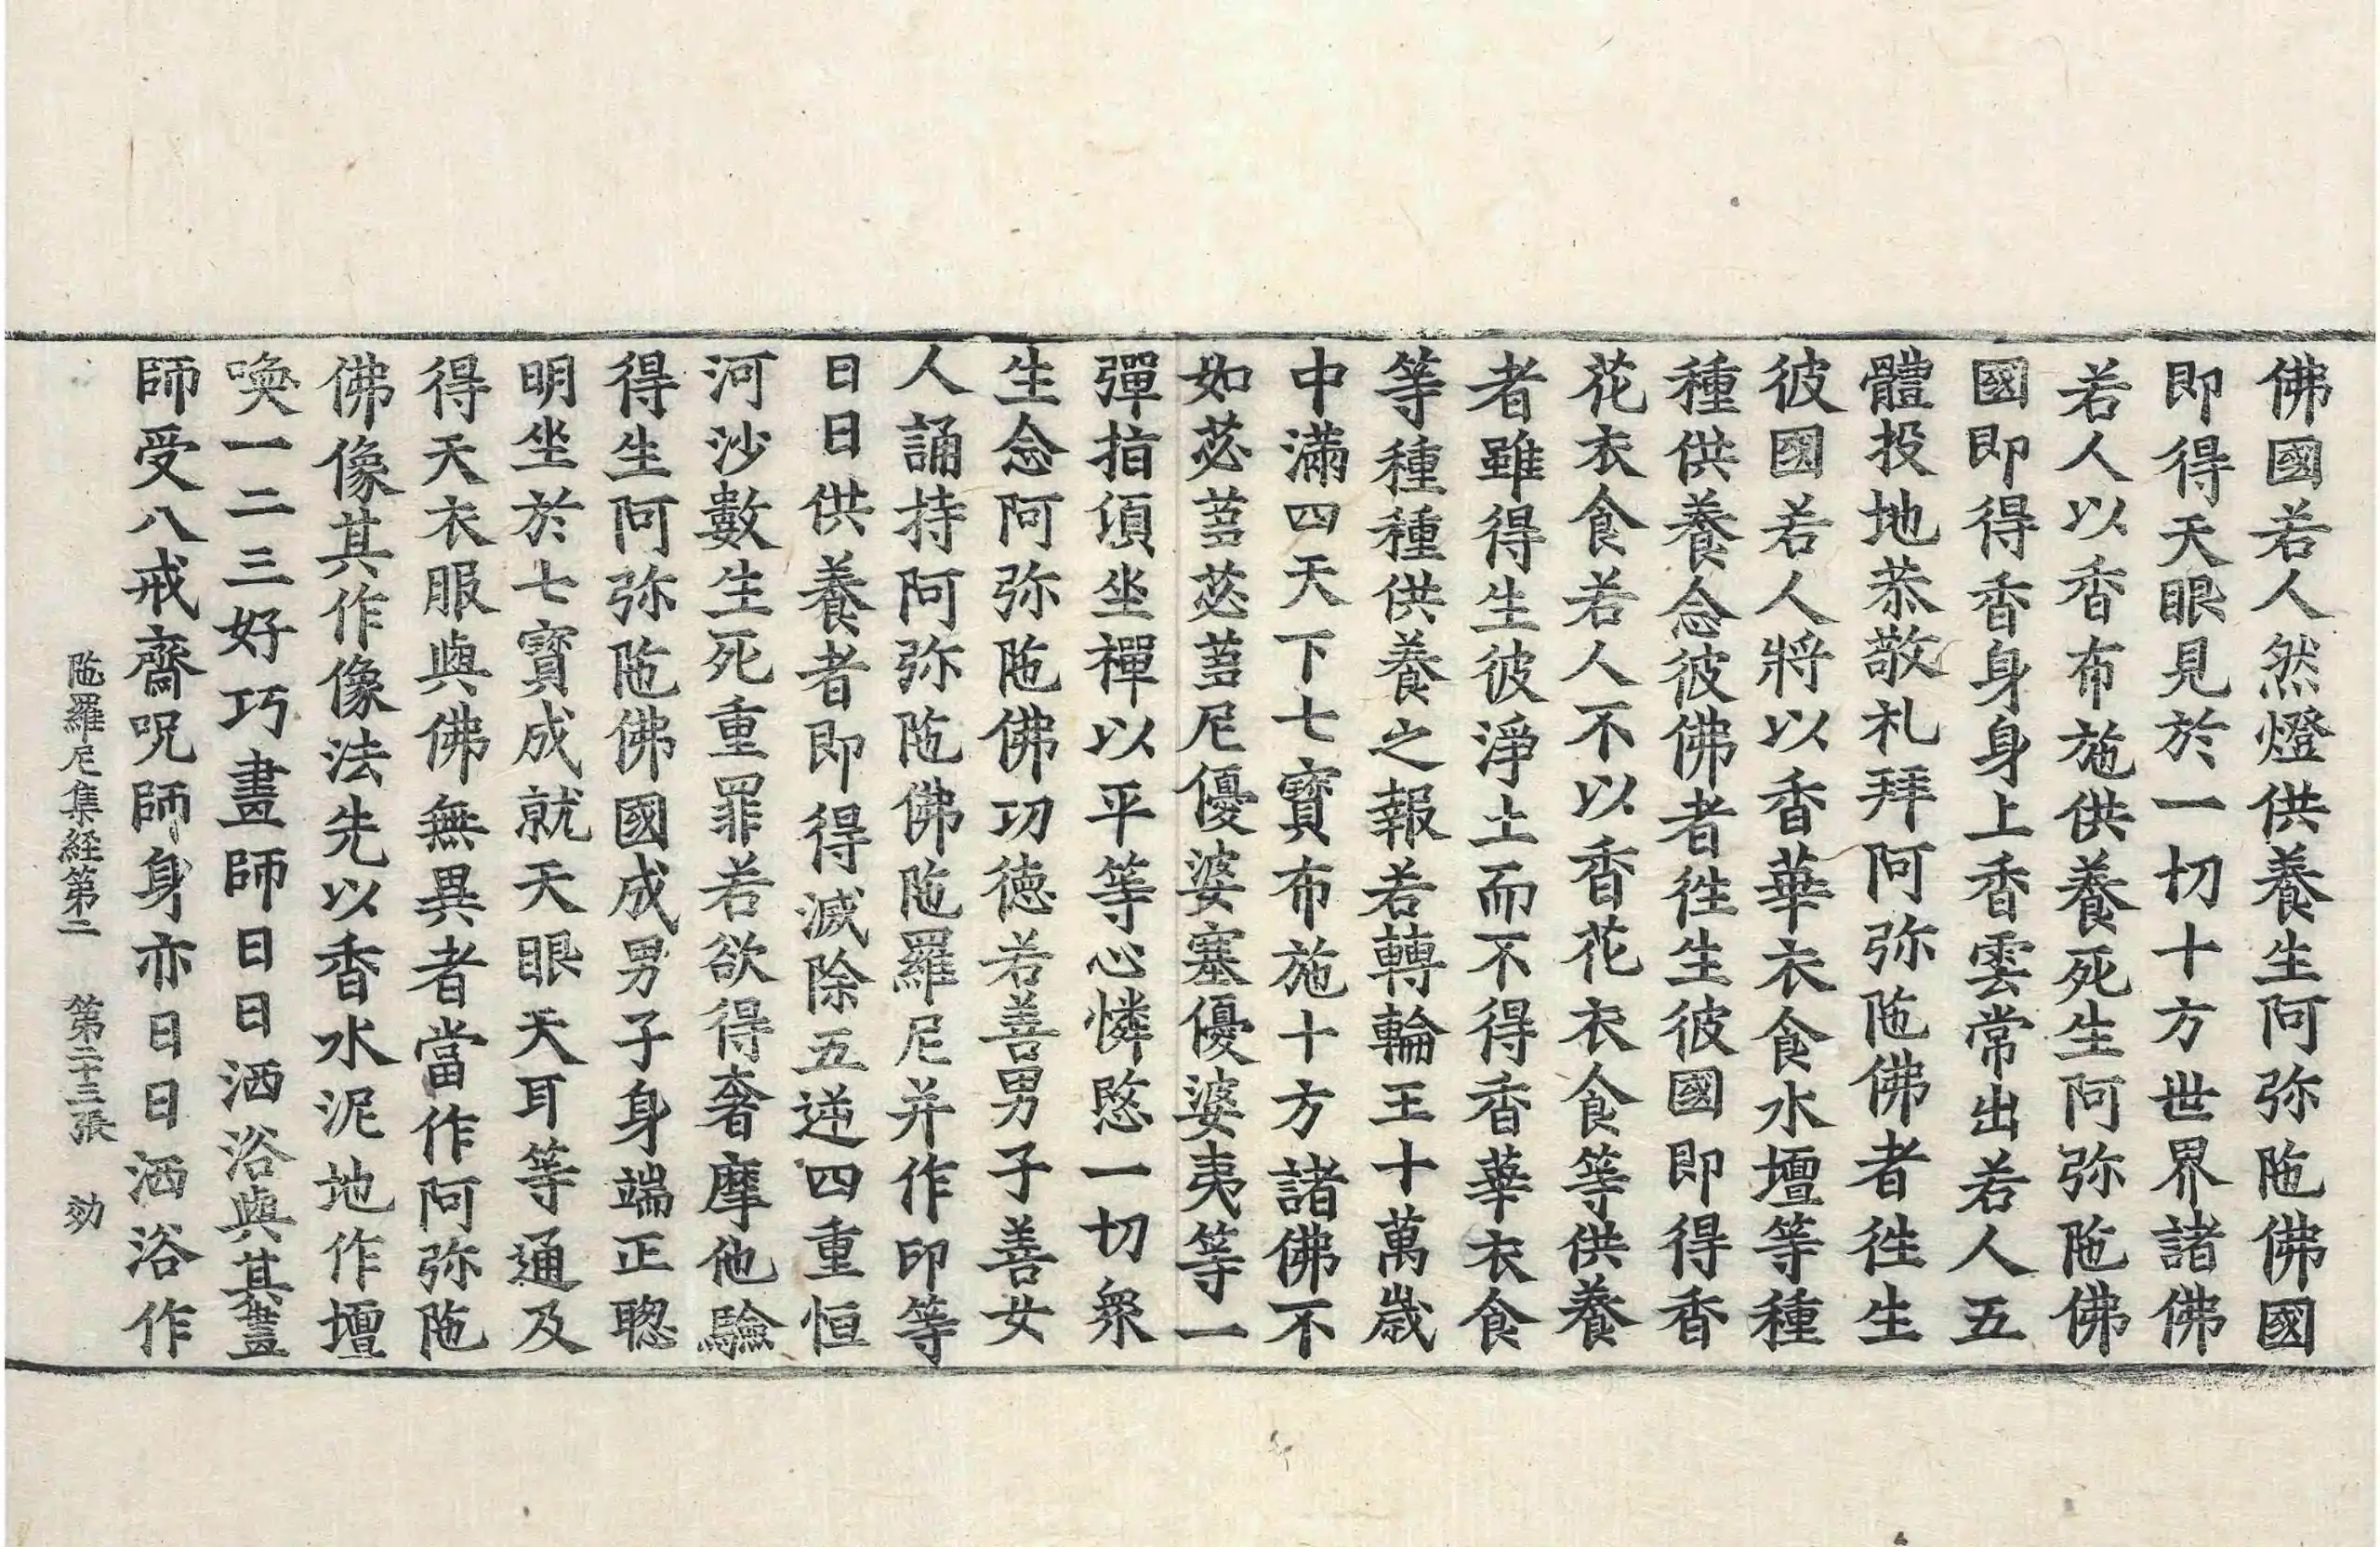 佛國若人然燈供養生阿弥陁佛國
即得天眼見於一切十方世界諸佛
若人以香布施供養死生阿弥陁佛
國即得香身身上香雲常出若人五
體投地恭敬礼拜阿弥陁佛者徃生
彼國若人將以香華衣食水壇等種
種供養念彼佛者徃生彼國即得香
花衣食若人不以香花衣食等供養
者雖得生彼淨土而不得香華衣食
等種種供養之報若轉輪王十萬歲
中滿四天下七寶布施十方諸佛不
如苾蒭苾蒭尼優婆塞優婆夷等一
彈指頃坐禪以平等心憐愍一切衆
生念阿弥陁佛功德若善男子善女
人誦持阿弥陁佛陁羅尼并作印等
日日供養者即得滅除五逆四重恒
河沙數生死重罪若欲得奢摩他驗
得生阿弥陁佛國成男子身端正聦
明坐於七寶成就天眼天耳等通及
得天衣服與佛無異者當作阿弥陁
佛像其作像法先以香水泥地作壇
喚一二三好巧畫師日日洒浴與其畫
師受八戒齋呪師師身亦日日洒浴作
陁羅尼集経第二　第二十三張　効